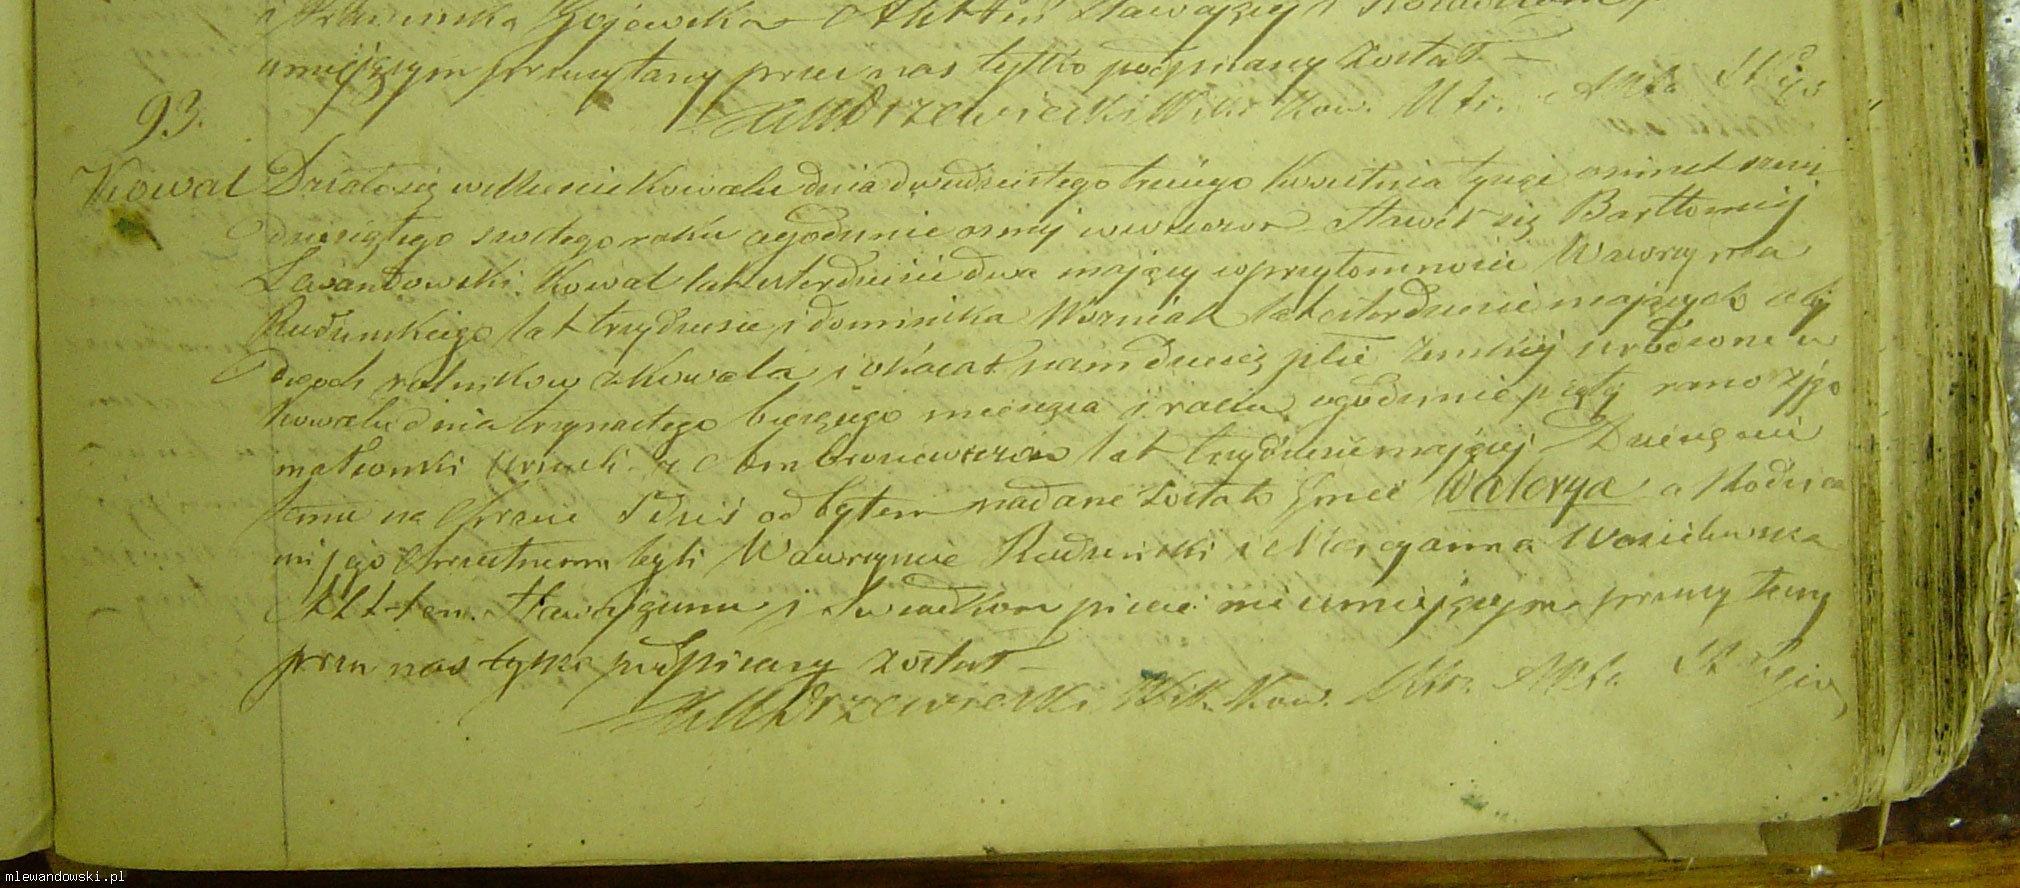 Gojewska Akt ten Stawającym i
umiejącym przeczytany przez nas tylko podpisany został
93.
X. M. Drzewiecki Wik. Kow. Utr. Akta St Cyw
Kowal Działo się w Mieście Kowalu dnia dwudziestego trzeciego Kwietnia tysiąc osmset
dziesiątego szóstego roku o godzinie osmej wieczor Stawił się Bartłomiej
Lewandowski Kowal lat czterdzieści dwa mający w przytomności Wawrzyńca
Rudzinskiego lat trzydzieści i Dominika Wozniak lat czterdzieści mających
rolnikow z Kowala i okazał nam dziecię płci żenskiej urodzone w
Kowalu dnia trzynastego bieżącego miesiąca i roku o godzinie piątej rano z jego
małżonki lat trzydzieści mającej Dziecięciu
temu na Chrzcie S dziś odbytem nadane zostało Jmie Walerya a Rodzica
mi jego Chrzestnemi byli Wawrzyniec Rudzinski i Maryanna
Akt ten Stawającemu i Swiadkom pisać nie umiejącym przeczytany
przez nas tylko podpisany został
X. M. Drzewiecki Wik. Kow. Utr. Akta St Cyw
mlewandowski.pl